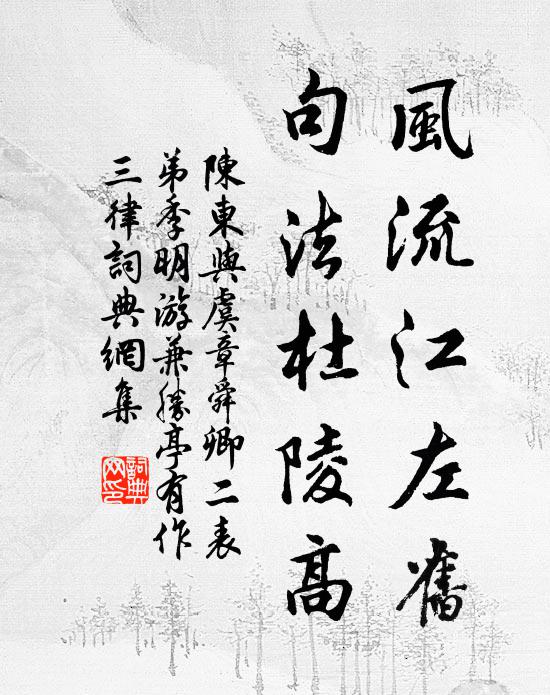 風流江左舊
句法杜陵高
陳東與虞章舜卿二表
弟季明游兼勝亭有作
三律詞典網集
詞典
网印